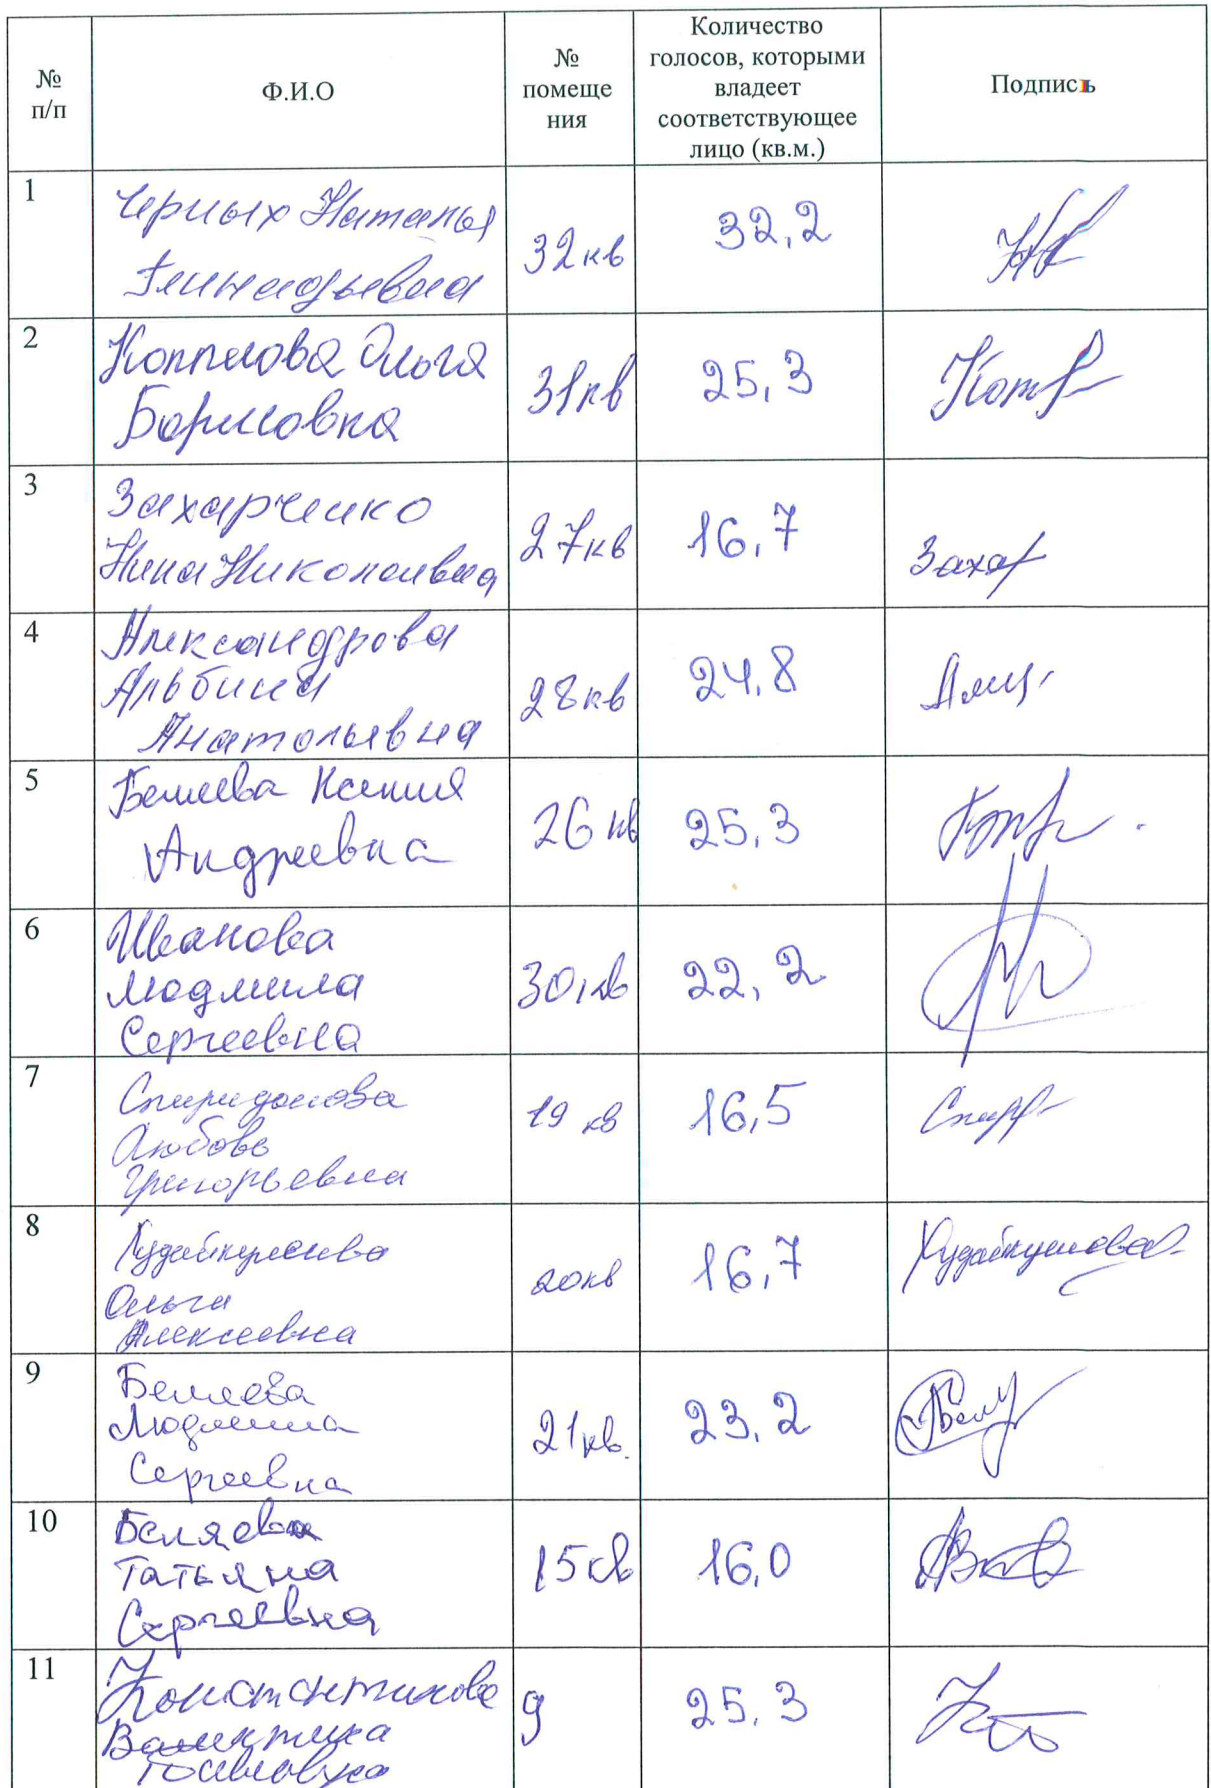 №
п/п
Ф.И.О
№
помеще
ния
Количество
голосов, которыми
владеет
соответствующее
лицо (кв.м.)
Подпись
1
Черных Наталья
Геннадьевна
32кв
32,2
2
Ольга
Борисовна
31кв
25,3
3
Захарченко
Нина Николаевна
27кв
16,7
Захар
4
Александрова
Альбина
Анатольевна
28кв
24,8
5
Беляева Ксения
Андреевна
26 кв
25,3
6
Иванова
Людмила
Сергеевна
30,кв
22,2
7
Спиридонова
Любовь
Григорьевна
19 кв
16,5
8
Ольга
Алексеевна
20кв
16,7
9
Беляева
Людмила
Сергеевна
21кв.
23,2
10
Беляева
Татьяна
Сергеевна
15кв
16,0
11
Константинова
Валентина
9
25,3